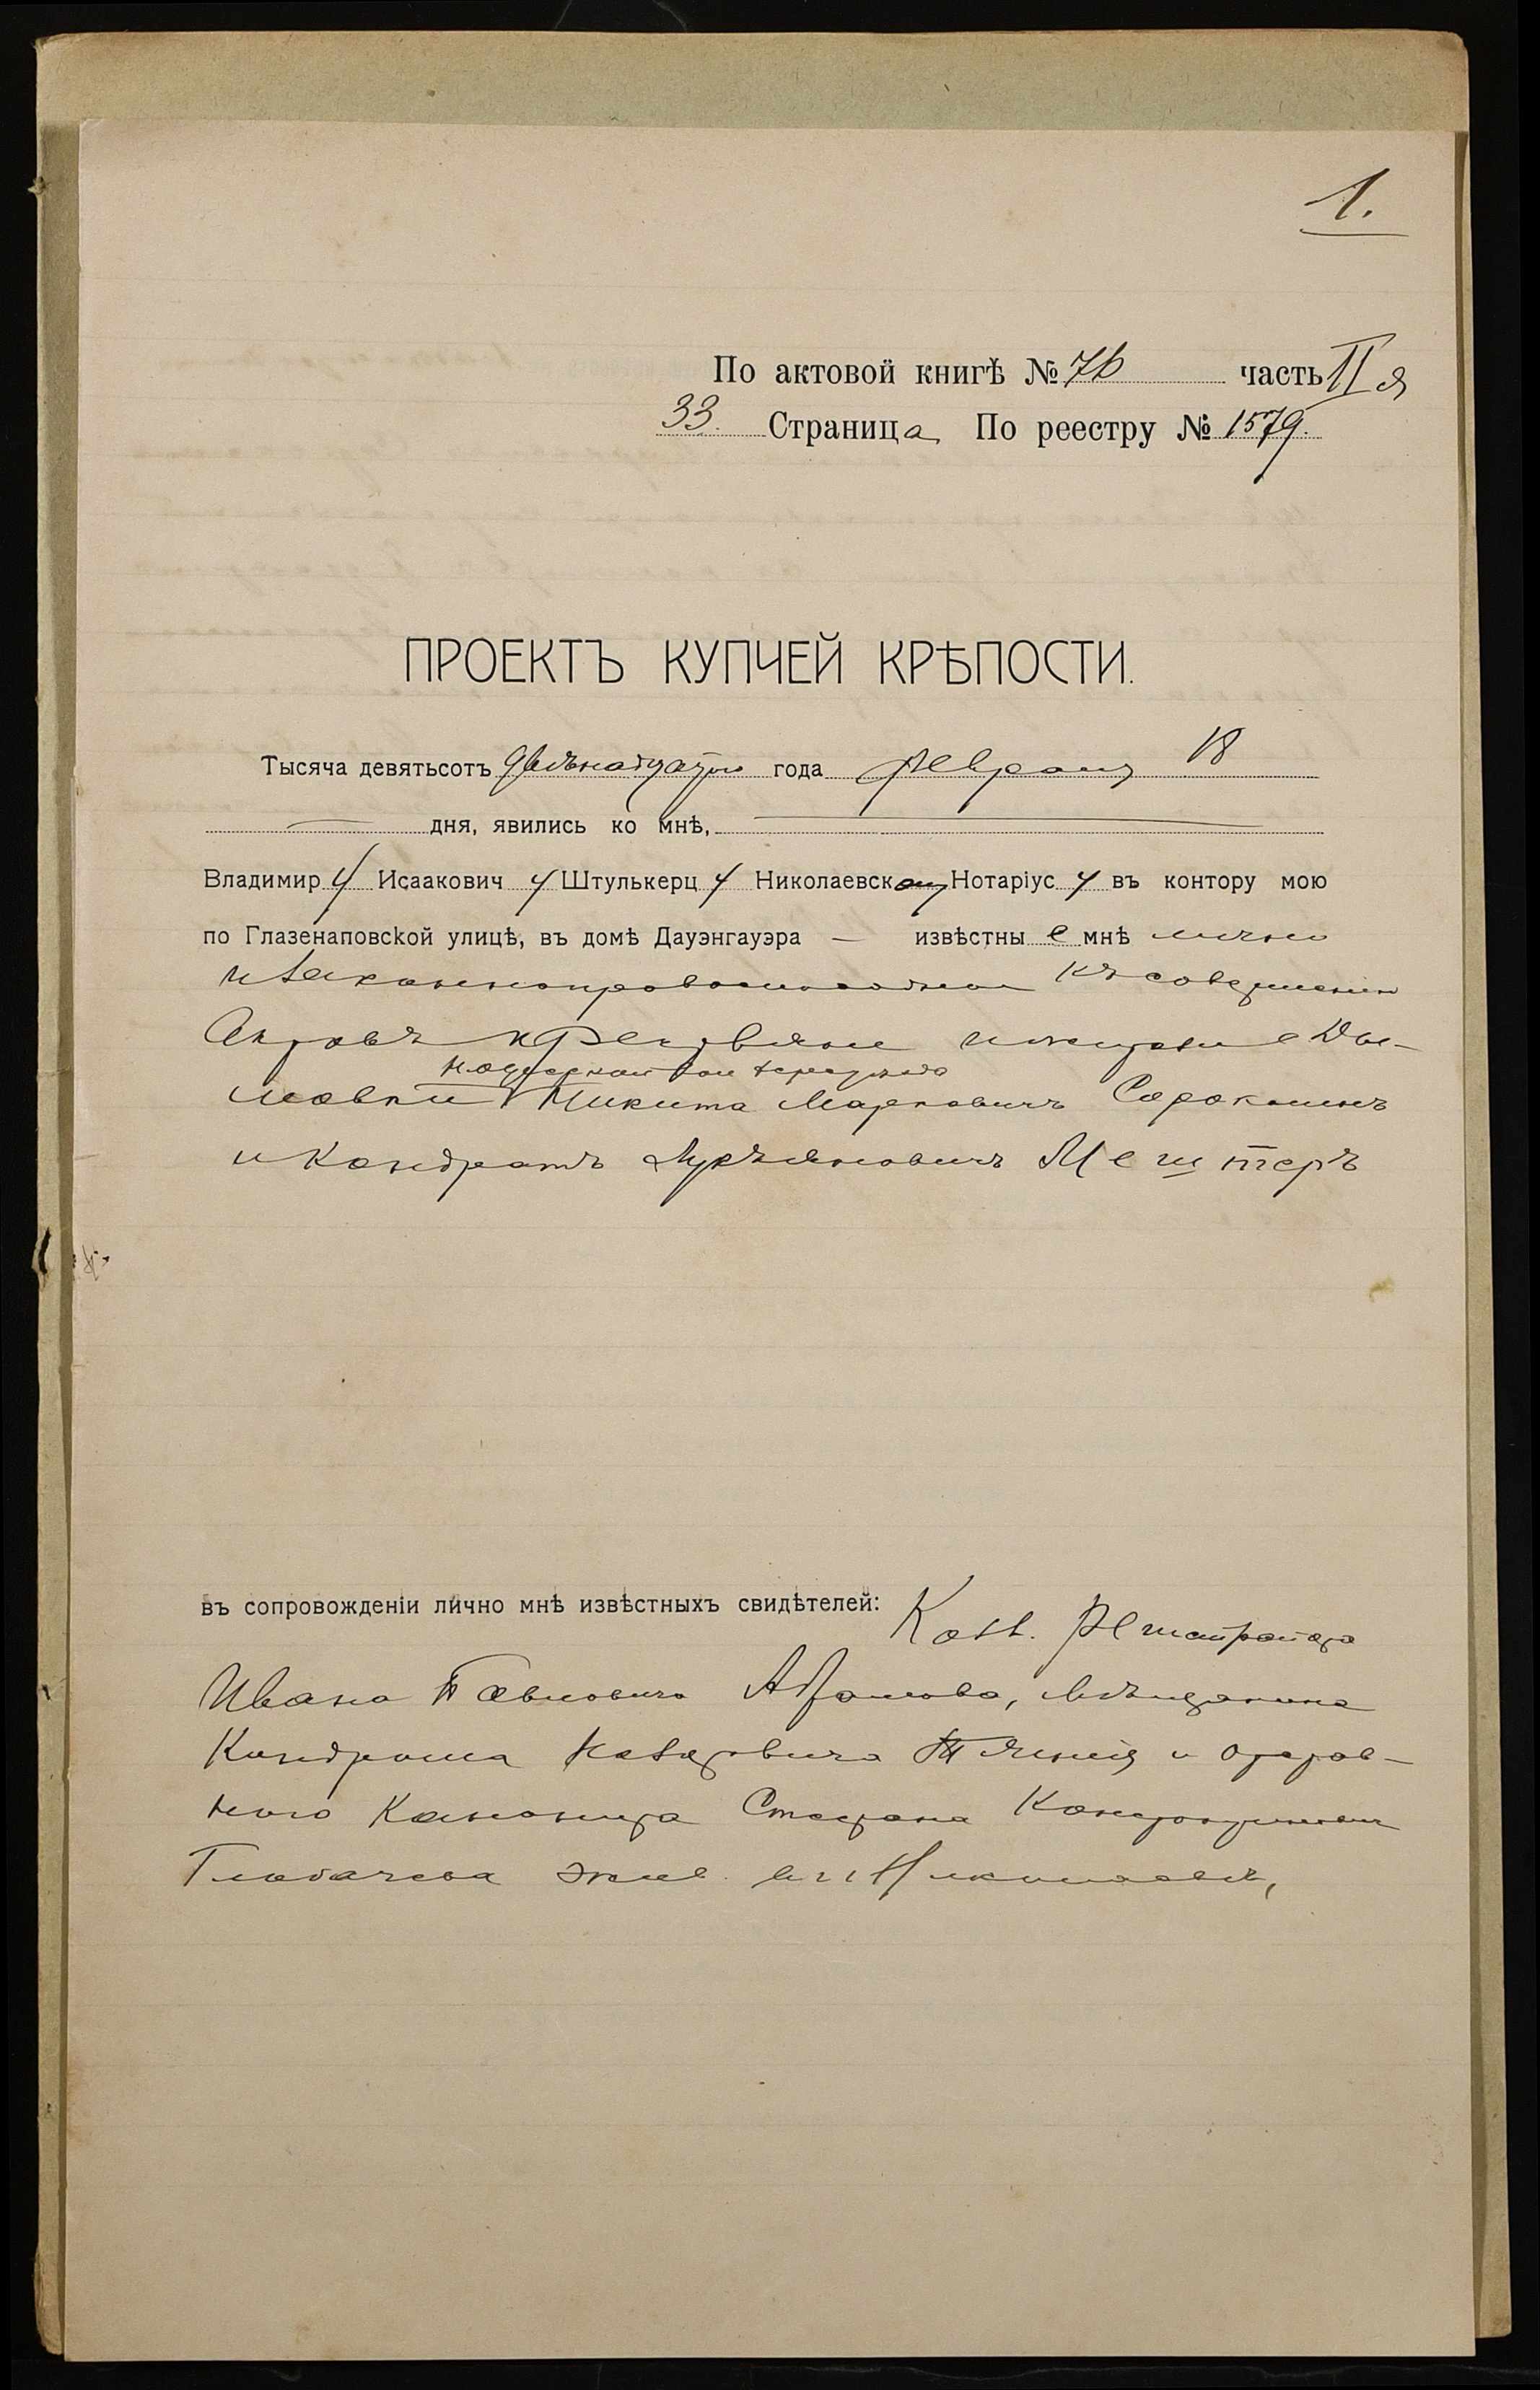 1.
По актовой книгѣ № 76 часть II я
33. Страница По реестру № 1579.
ПРОЕКТЪ КУПЧЕЙ КРѢПОСТИ.
Тысяча девятьсотъ двѣнадцатаго года февраля 18
дня, явились ко мнѣ,
Владимиру Исааковичу Штулькерцу Николаевскому Нотаріусу въ контору мою
по Глазенаповской улицѣ, въ домѣ Дауэнгауэра — извѣстные мнѣ лично
и законноправоспособные къ совершенію
Актовъ крестьяне
Никита Марковичъ Сорокинъ
и Кондратъ Мештеръ
въ сопровожденіи лично мнѣ извѣстныхъ свидѣтелей: Колл. Регистратора
Ивана Павловича Абрамова, мѣщанина
Кондрата и отстав-
ного Канонира Стефана
жив. въ г. Николаевѣ,